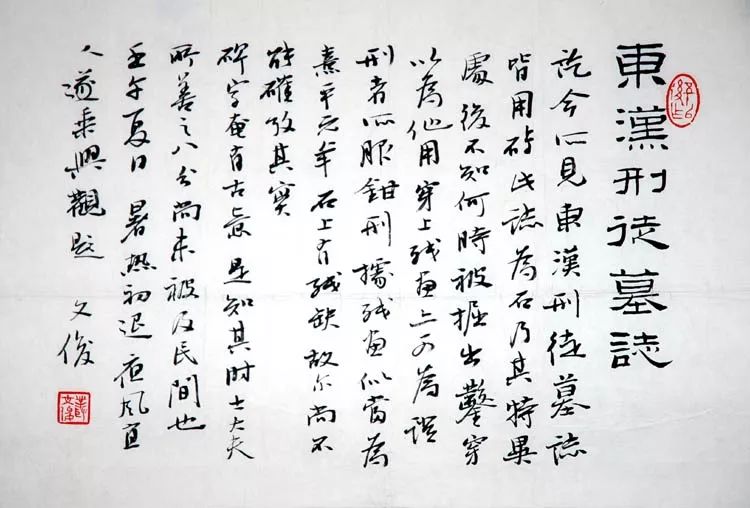 東漢刑徒墓誌
迄今所見東漢刑徒墓誌
皆用磚此誌為石乃其特異
處後不知何時被掘出鑿穿
以為他用穿上殘畫上可為
刑者所服鉗刑據殘畫似當為
熹平元年石上有殘缺故尔尚不
能確攷其實
碑字奄有古意是知其時士大夫
所善之八分尚未被及民間也
壬午夏日暑熱初退夜風宜
人遂乘興觀題 文俊